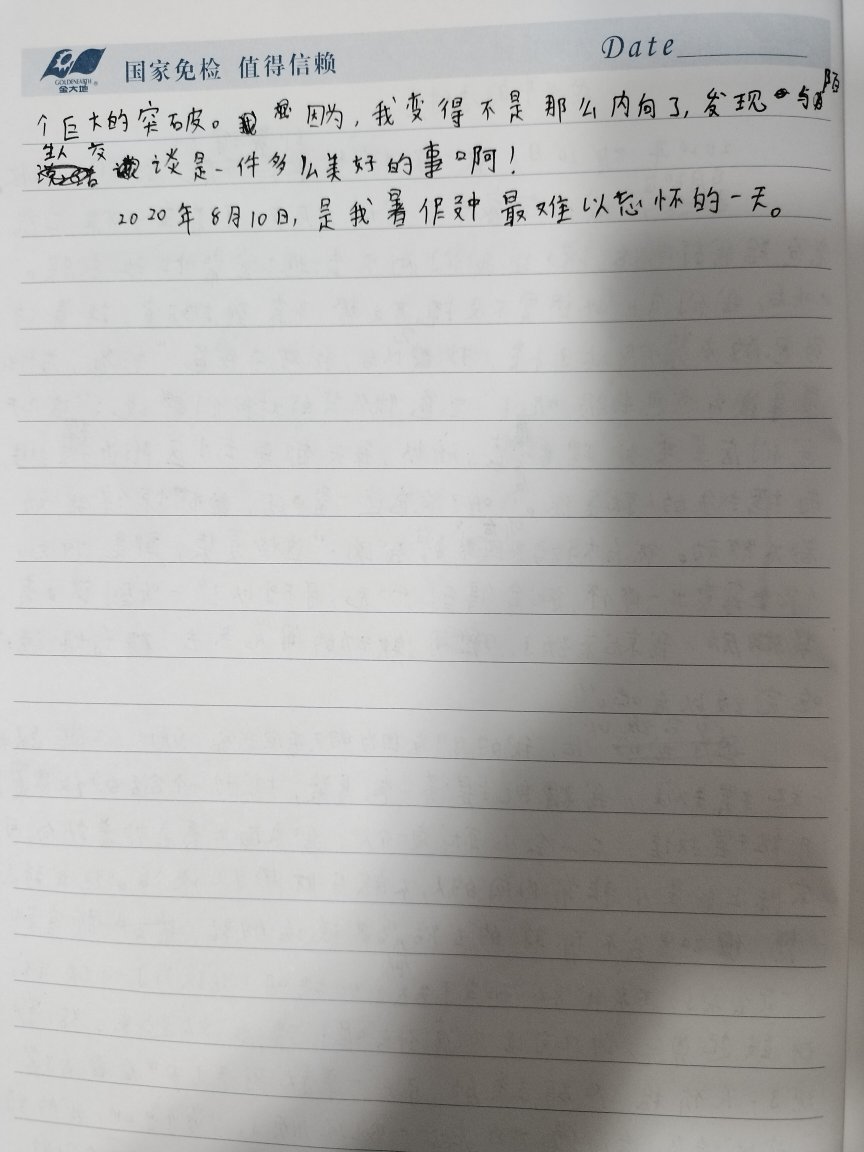 GOLDENEARTH
金大地
国家免检 值得信赖
Date
个巨大的突破。因为,我变得不是那么内向了,发现与陌
生人交谈是一件多么美好的事啊!
2020年8月10日,是我暑假中最难以忘怀的一天。